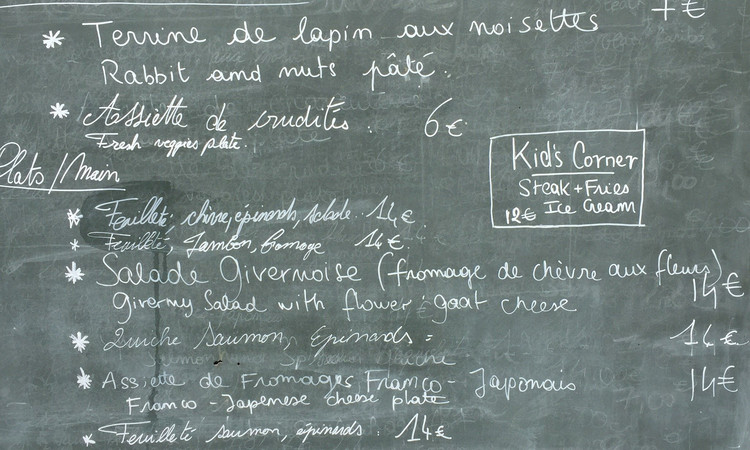 * Terrine de lapin aux noisettes
Rabbit and nuts pâté.
* Assiette de crudités : 6€
Fresh veggies plate.
Plats/Main
Kid's Corner
Steak + Fries
12€ Ice Cream
* Feuilleté, chèvre, épinards, salade. 14€.
* Feuilleté, Jambon, fromage 14€.
* Salade Givernoise (fromage de chèvre aux fleurs) 14€
Giverny Salad with flower goat cheese
* Quiche Saumon, Epinards = 14€
Salmon and Spinach Quiche
* Assiette de Fromages Franco-Japonais 14€
Franco-Japenese cheese plate
* Feuilleté saumon, épinards : 14€